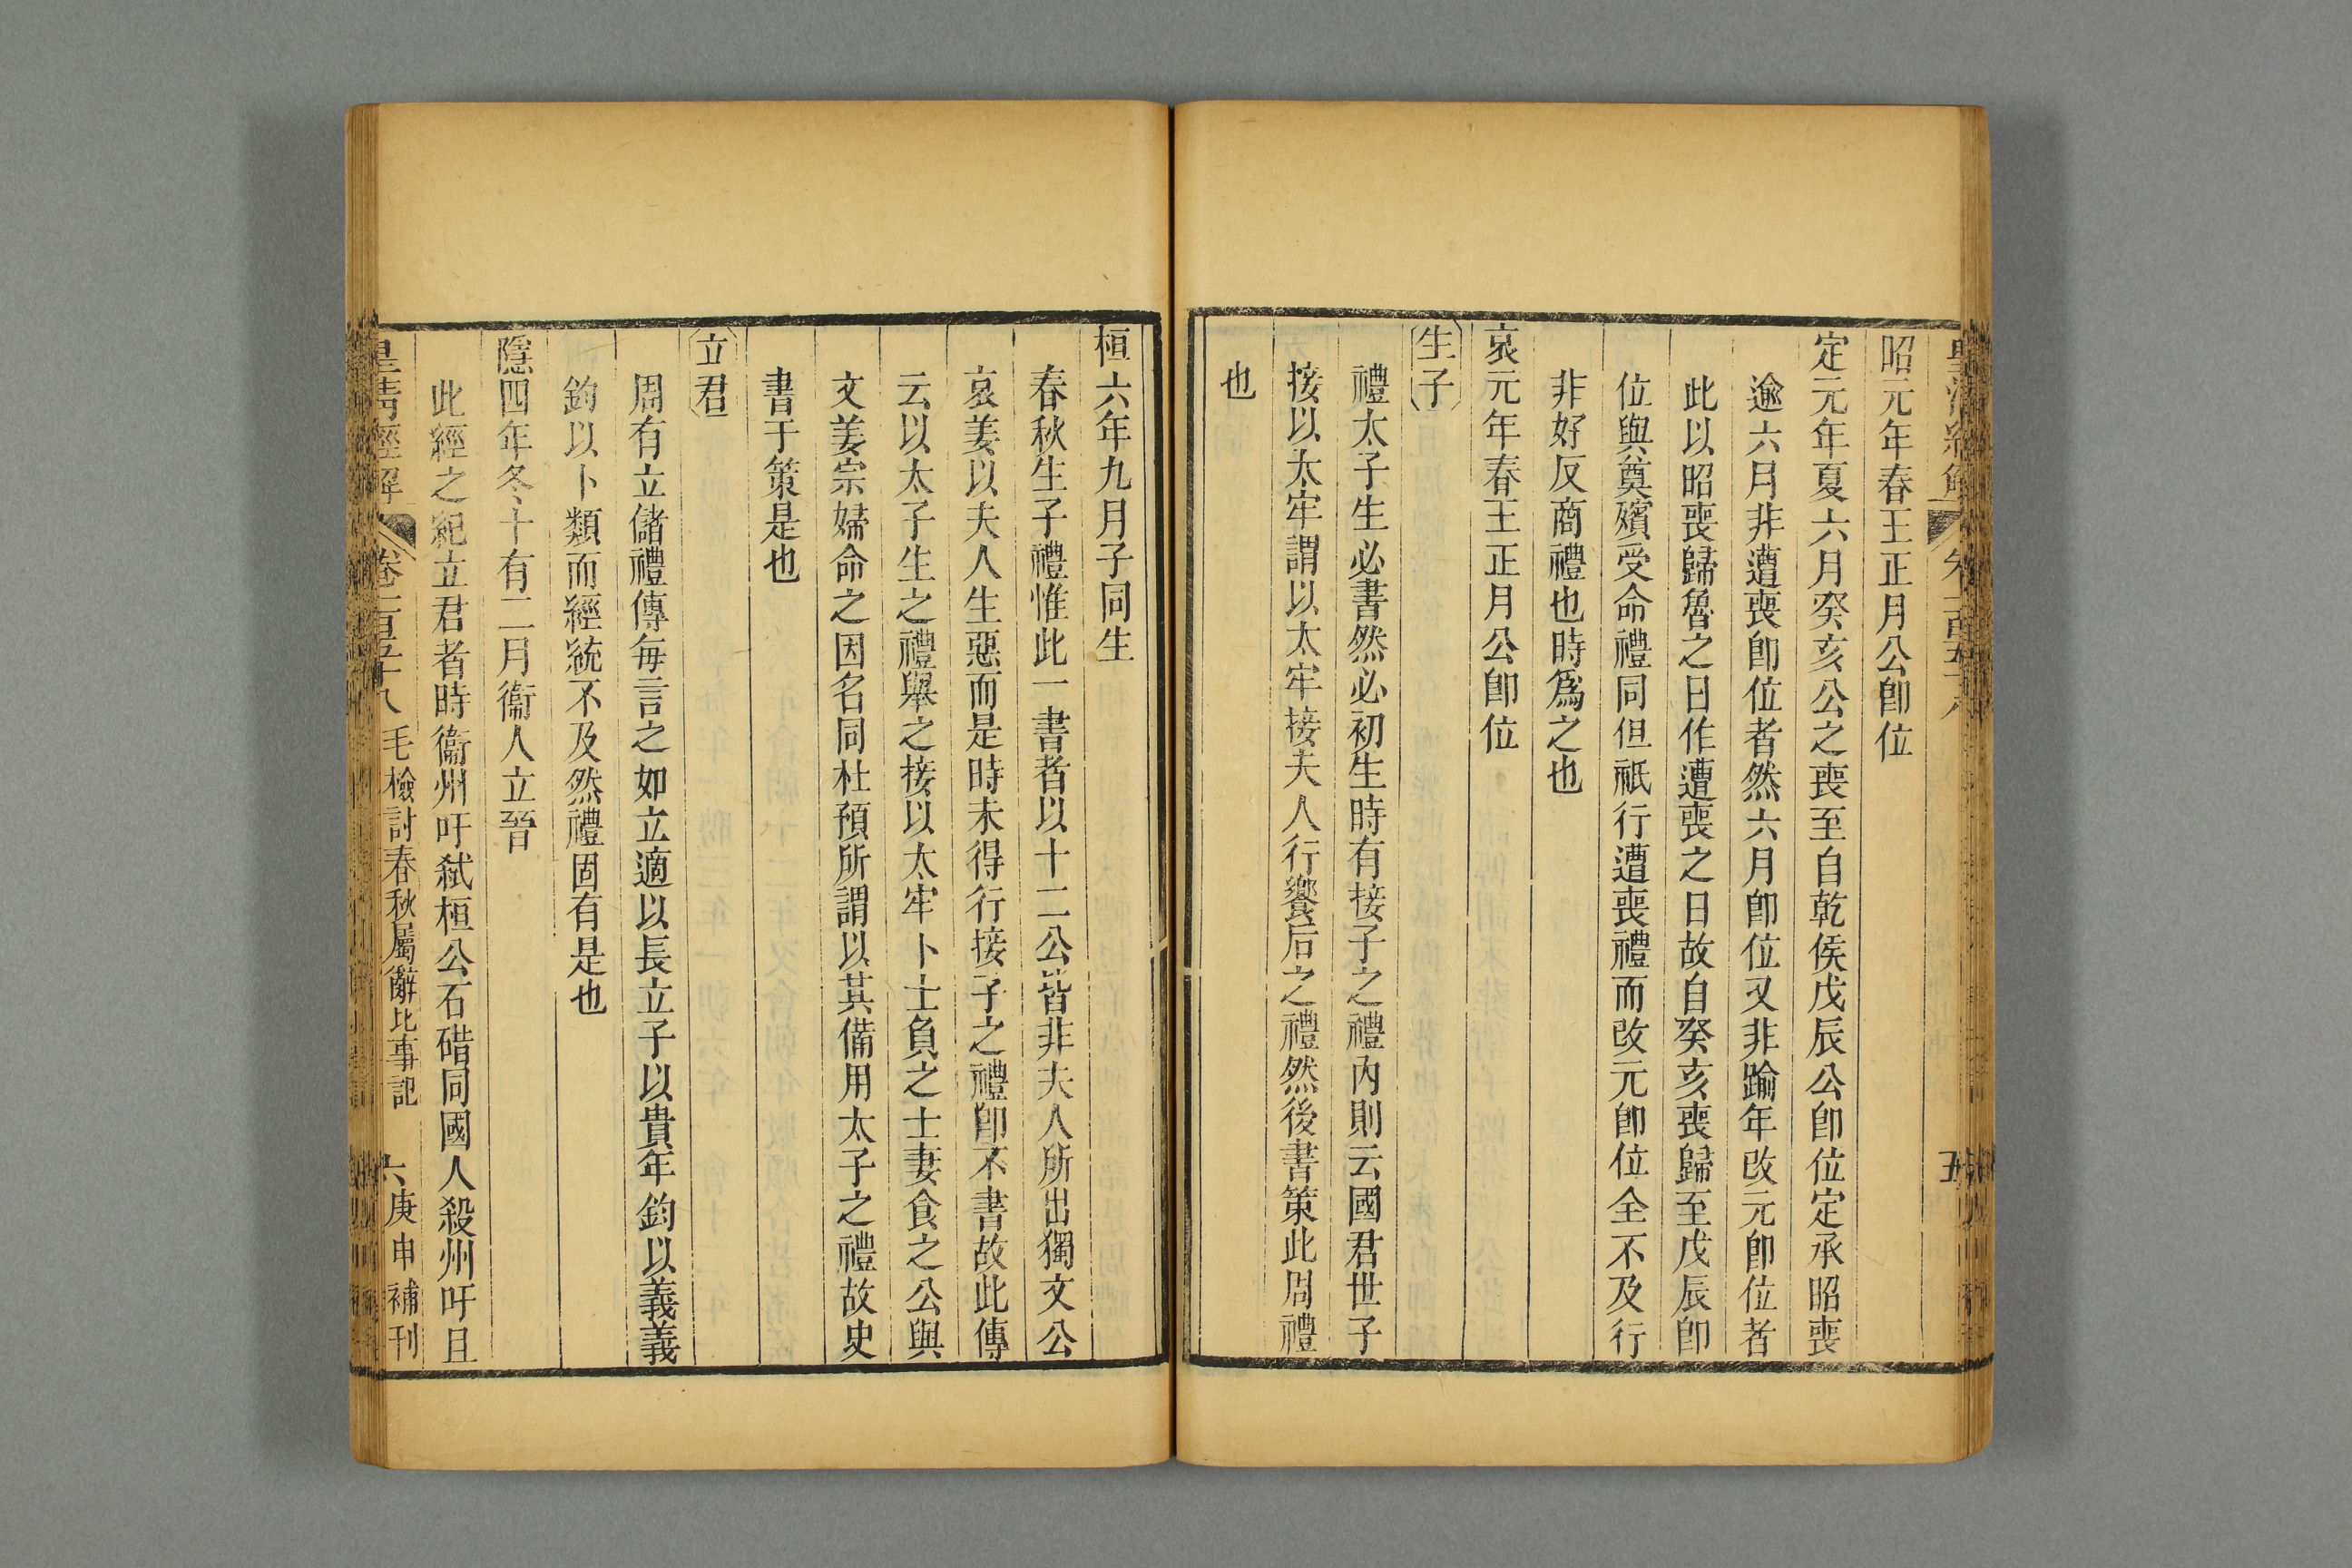 昭元年春王正月公卽位
定元年夏六月癸亥公之喪至自乾侯戊辰公卽位定承昭喪
逾六月非遭喪卽位者然六月卽位又非踰年改元卽位者
此以昭喪歸魯之日作遭喪之日故自癸亥喪歸至戊辰卽
位與奠殯受命禮同但祇行遭喪禮而改元卽位全不及行
非好反商禮也時爲之也
哀元年春王正月公卽位
生子
禮太子生必書然必初生時有接子之禮內則云國君世子
接以太牢謂以太牢接夫人行饗后之禮然後書策此周禮
也
桓六年九月子同生
春秋生子禮惟此一書者以十二公皆非夫人所出獨文公
哀姜以夫人生惡而是時未得行接子之禮卽不書故此傳
云以太子生之禮舉之接以太牢卜士負之士妻食之公與
文姜宗婦命之因名同杜預所謂以其備用太子之禮故史
書于策是也
立君
周有立儲禮傳每言之如立適以長立子以貴年鈞以義義
鈞以卜類而經統不及然禮固有是也
隱四年冬十有二月衞人立晉
此經之紀立君者時衞州吁弒桓公石碏同國人殺州吁且
皇淸經解 卷一百五十八 毛檢討春秋屬辭比事記 六 庚申補刊